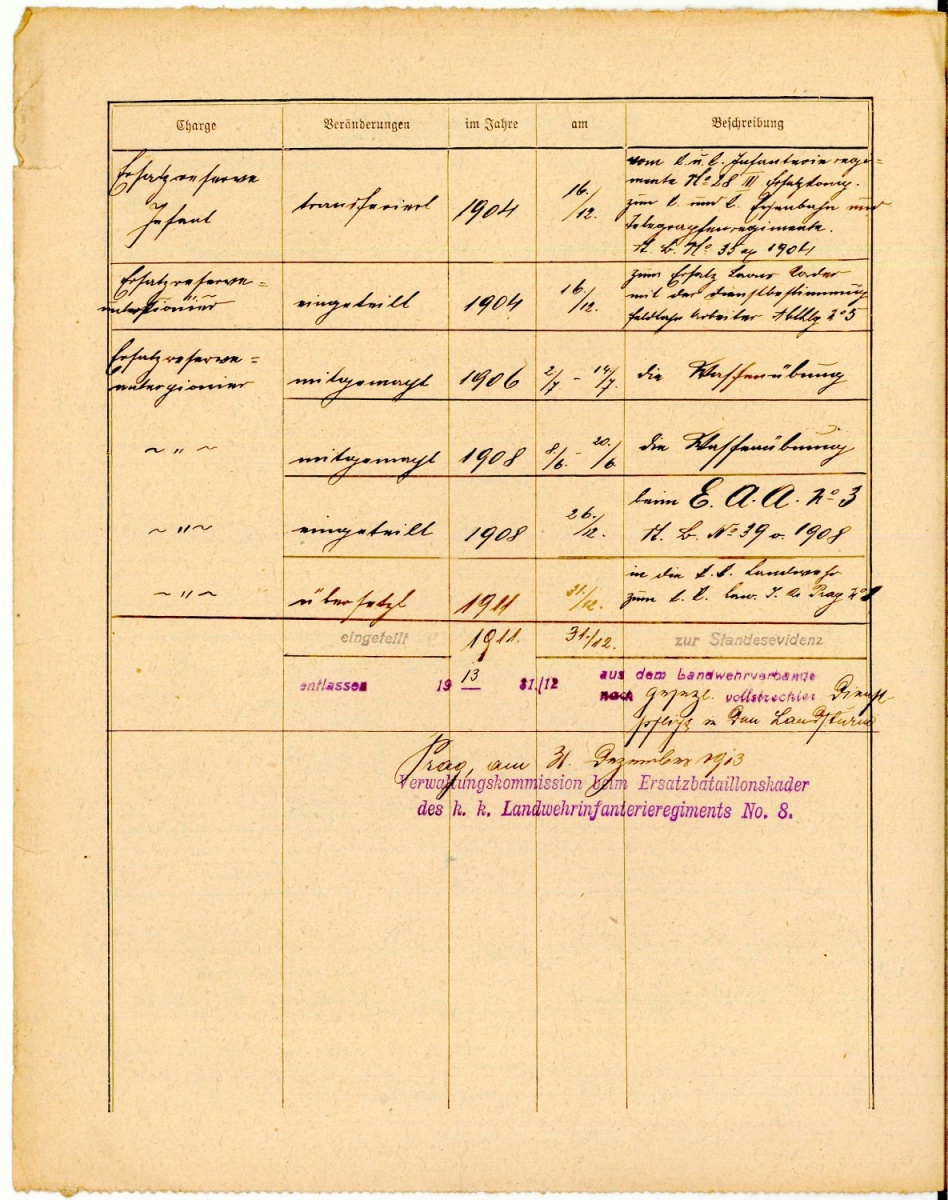 Charge Veränderungen im Jahre am Beschreibung
Ersatzreserve
Infant transferiert 1904 16./12.
vom k. u. k. Infanterie regi-
mente No 28 III Ersatzkomp.
zum k. und k. Eisenbahn und
Telegraphenregimente.
St. B. No 35 ex 1904
Ersatzreserve=
unterpionier eingeteilt 1904 16./12.
zum Ersatz Cadre
mit der Dienstbestimmung
Feldbahn Arbeiter Abthlg No 5
Ersatzreserve=
unterpionier mitgemacht 1906 2/7 - 14/7. die Waffenübung
~ " ~ mitgemacht 1908 8/6. - 20./6 die Waffenübung
~ " ~ eingeteilt 1908 26./12.
beim E. A. A. No 3
St. B. No 39 v. 1908
~ " ~ übersetzt 1911 31./12.
in die k. k. Landwehr
zum k. k. Prag No 8
eingeteilt 1911. 31./12. zur Standesevidenz
entlassen 1913 31./12 aus dem Landwehrverbande
nach gesetzl. vollstreckter Dienst-
pflicht in den Landsturm
Prag, am 31. Dezember 1913
Verwaltungskommission beim Ersatzbataillonskader
des k. k. Landwehrinfanterieregiments No. 8.